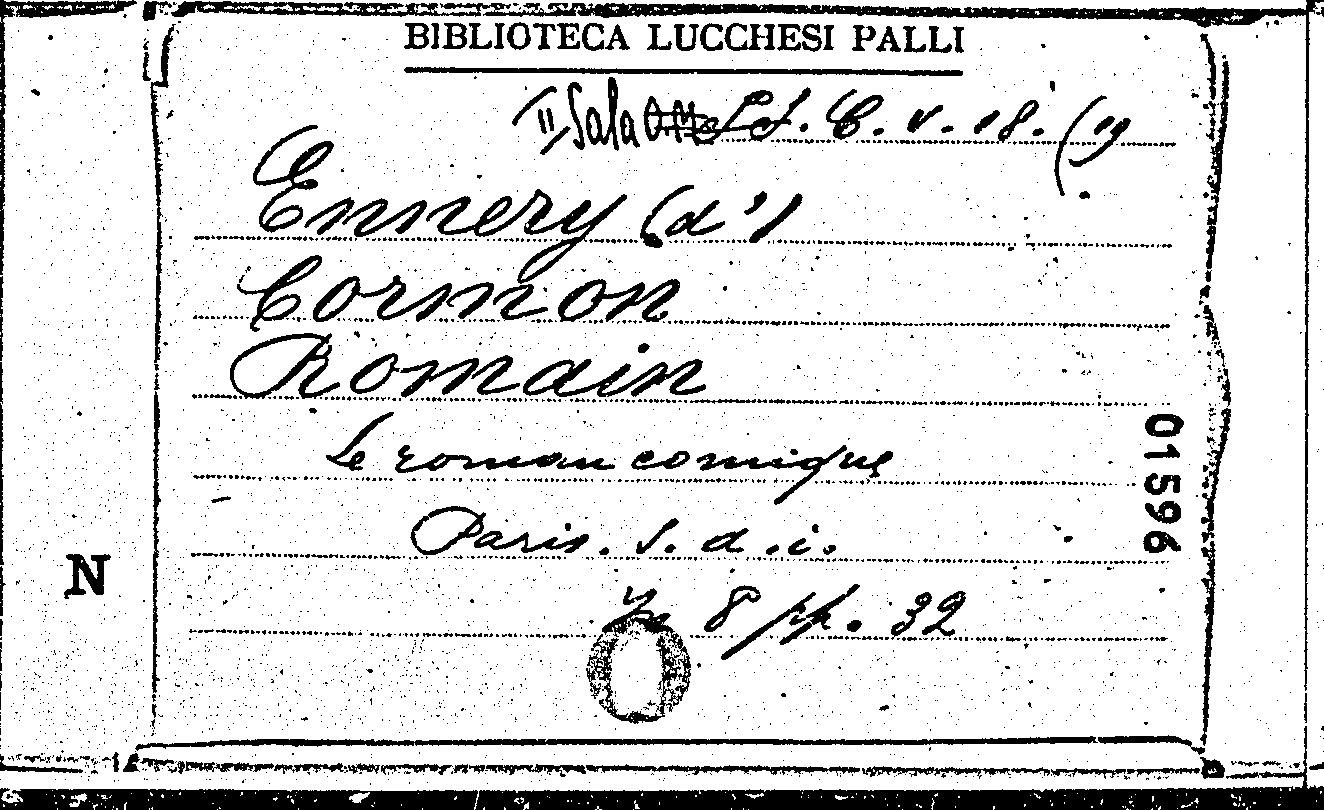 BIBLIOTECA LUCCHESI PALLI
II Sala C. V. 18. (19
Ennery (d')
Cormon
Romain
Le roman comique
01596
Paris. S. d. i.
N
In 8 pp. 32